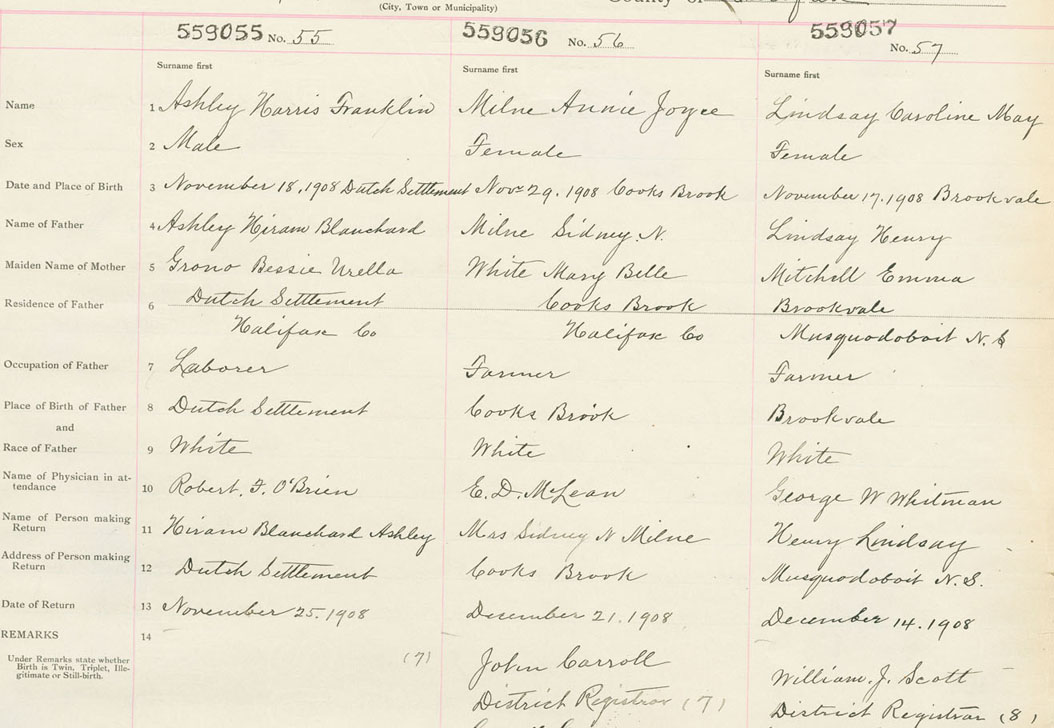 (City, Town or Municipality)
County of
559055 No. 55
559056 No. 56
559057 No. 57
Surname first
Surname first
Surname first
Name 1 Ashley Harris Franklin Milne Annie Joyce Lindsay Caroline May
Sex 2 Male Female Female
Date and Place of Birth 3 November 18, 1908 Dutch Settlement Novr 29. 1908 Cooks Brook November 17. 1908 Brookvale
Name of Father 4 Ashley Hiram Blanchard Milne Sidney. N. Lindsay Henry
Maiden Name of Mother 5 Grono Bessie Urella White Mary Belle Mitchell Emma
Residence of Father 6 Dutch Settlement Cooks Brook Brookvale
Halifax Co Halifax Co Musquodoboit N.S
Occupation of Father 7 Laborer Farmer Farmer
Place of Birth of Father 8 Dutch Settlement Cooks Brook Brookvale
and
Race of Father 9 White White White
Name of Physician in at-
tendance 10 Robert. F. O'Brien E. D. McLean George W Whitman
Name of Person making
Return 11 Hiram Blanchard Ashley Mrs Sidney N Milne Henry Lindsay
Address of Person making
Return 12 Dutch Settlement Cooks Brook Musquodoboit N.S.
Date of Return 13 November 25. 1908 December 21. 1908 December 14. 1908
REMARKS 14
Under Remarks state whether
Birth is Twin, Triplet, Ille-
gitimate or Still-birth.
(7) John Carroll William. J. Scott
District Registrar (7) District Registrar (8)